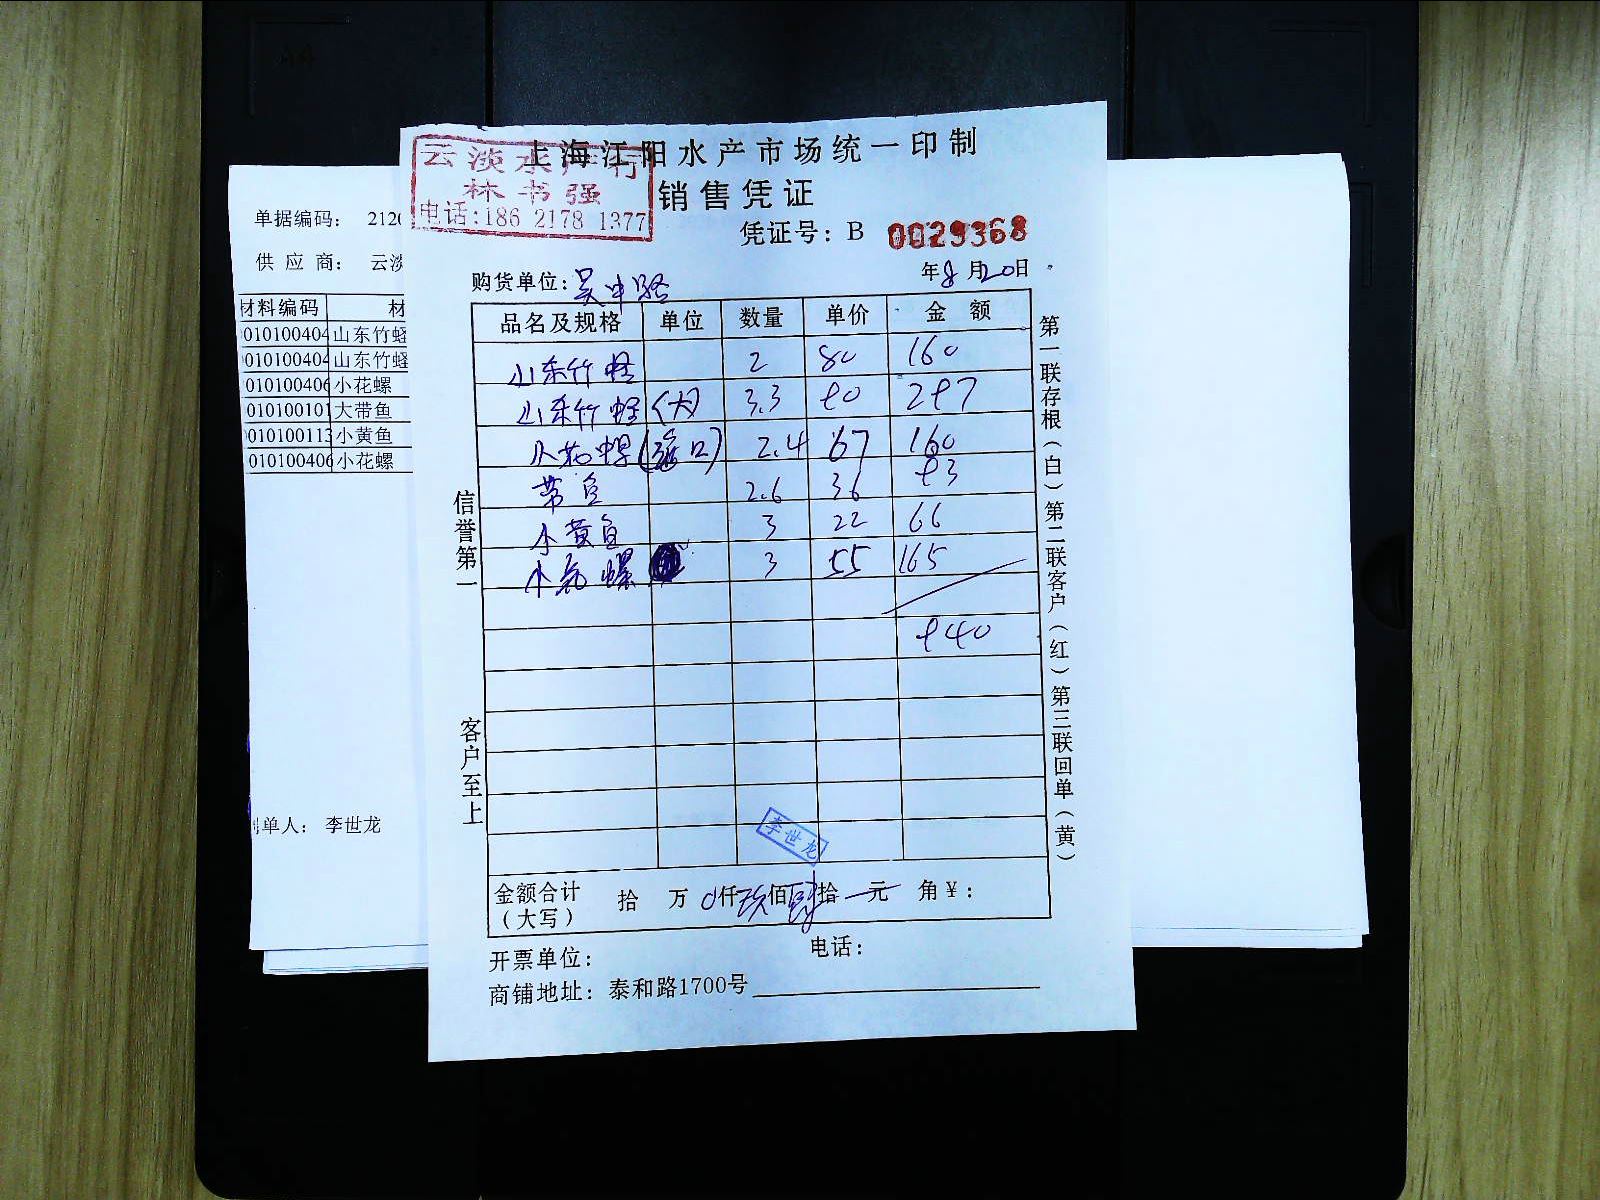 上海江阳水产市场统一印制
云淡水产行
林书强
电话:186 2178 1377
销售凭证
凭证号: B 0029368
购货单位: 吴中路
年8月20日
品名及规格 单位 数量 单价 金额
山东竹蛏 2 80 160
山东竹蛏(大) 3.3 90 297
小花螺( 口) 2.4 67 160
带鱼 2.6 36 93
小黄鱼 3 22 66
小花螺 3 55 165
940
李世龙
金额合计(大写) 拾 万 0仟玖佰肆拾 元 角¥:
开票单位: 电话:
商铺地址: 泰和路1700号
信誉第一
客户至上
第一联存根(白)第二联客户(红)第三联回单(黄)
单据编码: 2120
供应商: 云淡
材料编码 材
010100404 山东竹蛏
010100404 山东竹蛏
010100406 小花螺
010100101 大带鱼
010100113 小黄鱼
010100406 小花螺
制单人: 李世龙
A4